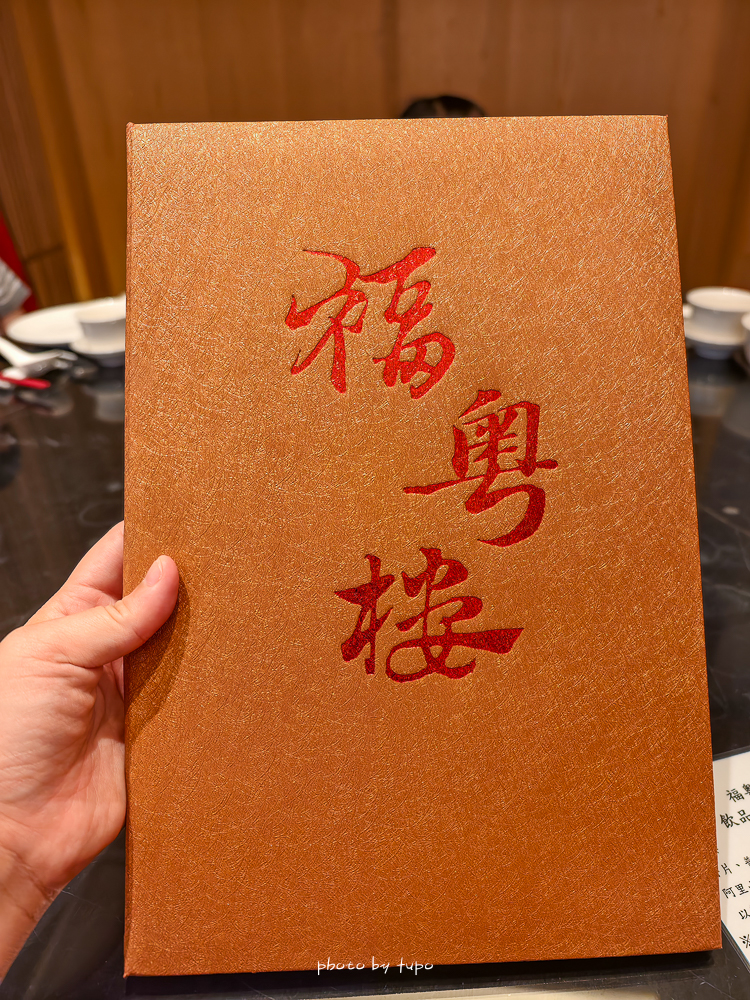 福
粵
樓
福粵
飲品
片、
阿里
以
※
photo by tupo